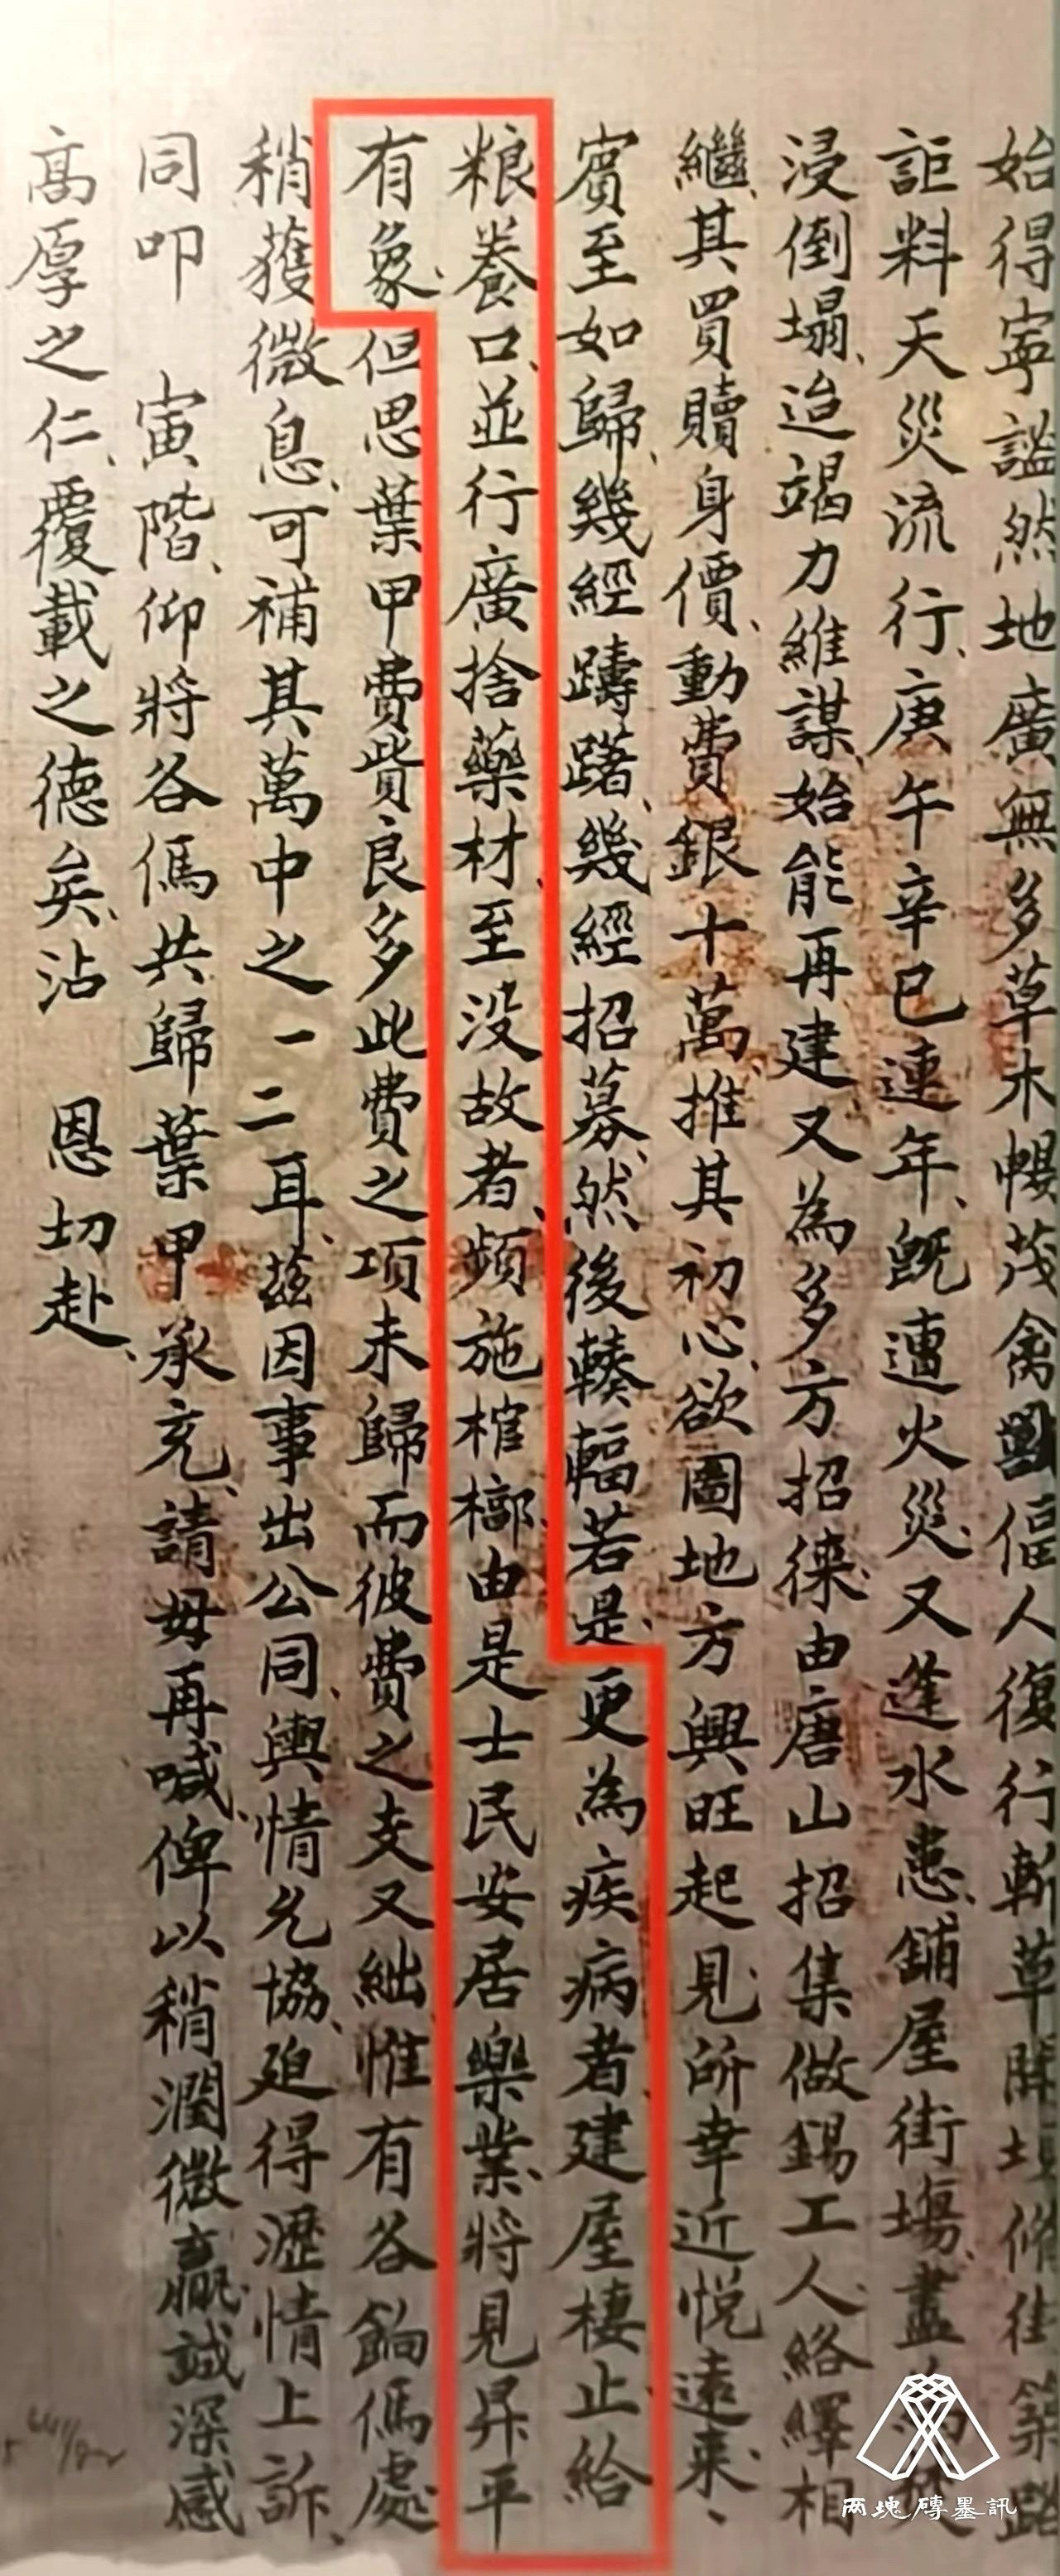 始得寧謐然地廣無多草木暢茂禽獸偪人復行斬草開埗修街築路
詎料天災流行庚午辛巳連年既遭火災又逢水患鋪屋街塲盡
浸倒塌迨竭力維謀始能再建又為多方招徠由唐山招集做錫工人絡繹相
繼其買贖身價動費銀十萬推其初心欲圖地方興旺起見所幸近悅遠來
賓至如歸幾經躊躇幾經招募然後轃輻若是更為疾病者建屋棲止給
粮養口並行廣捨藥材至没故者頻施棺槨由是士民安居樂業將見昇平
有象但思葉甲費貲良多此費之項未歸而彼費之支又絀惟有各餉傌處
稍獲微息可補其萬中之一二耳茲因事出公同輿情允協廹得瀝情上訴
同叩 寅階仰將各傌共歸葉甲承充請毋再喊俾以稍潤微贏誠深感
高厚之仁覆載之德矣沾 恩切赴
两塊磚墨訊